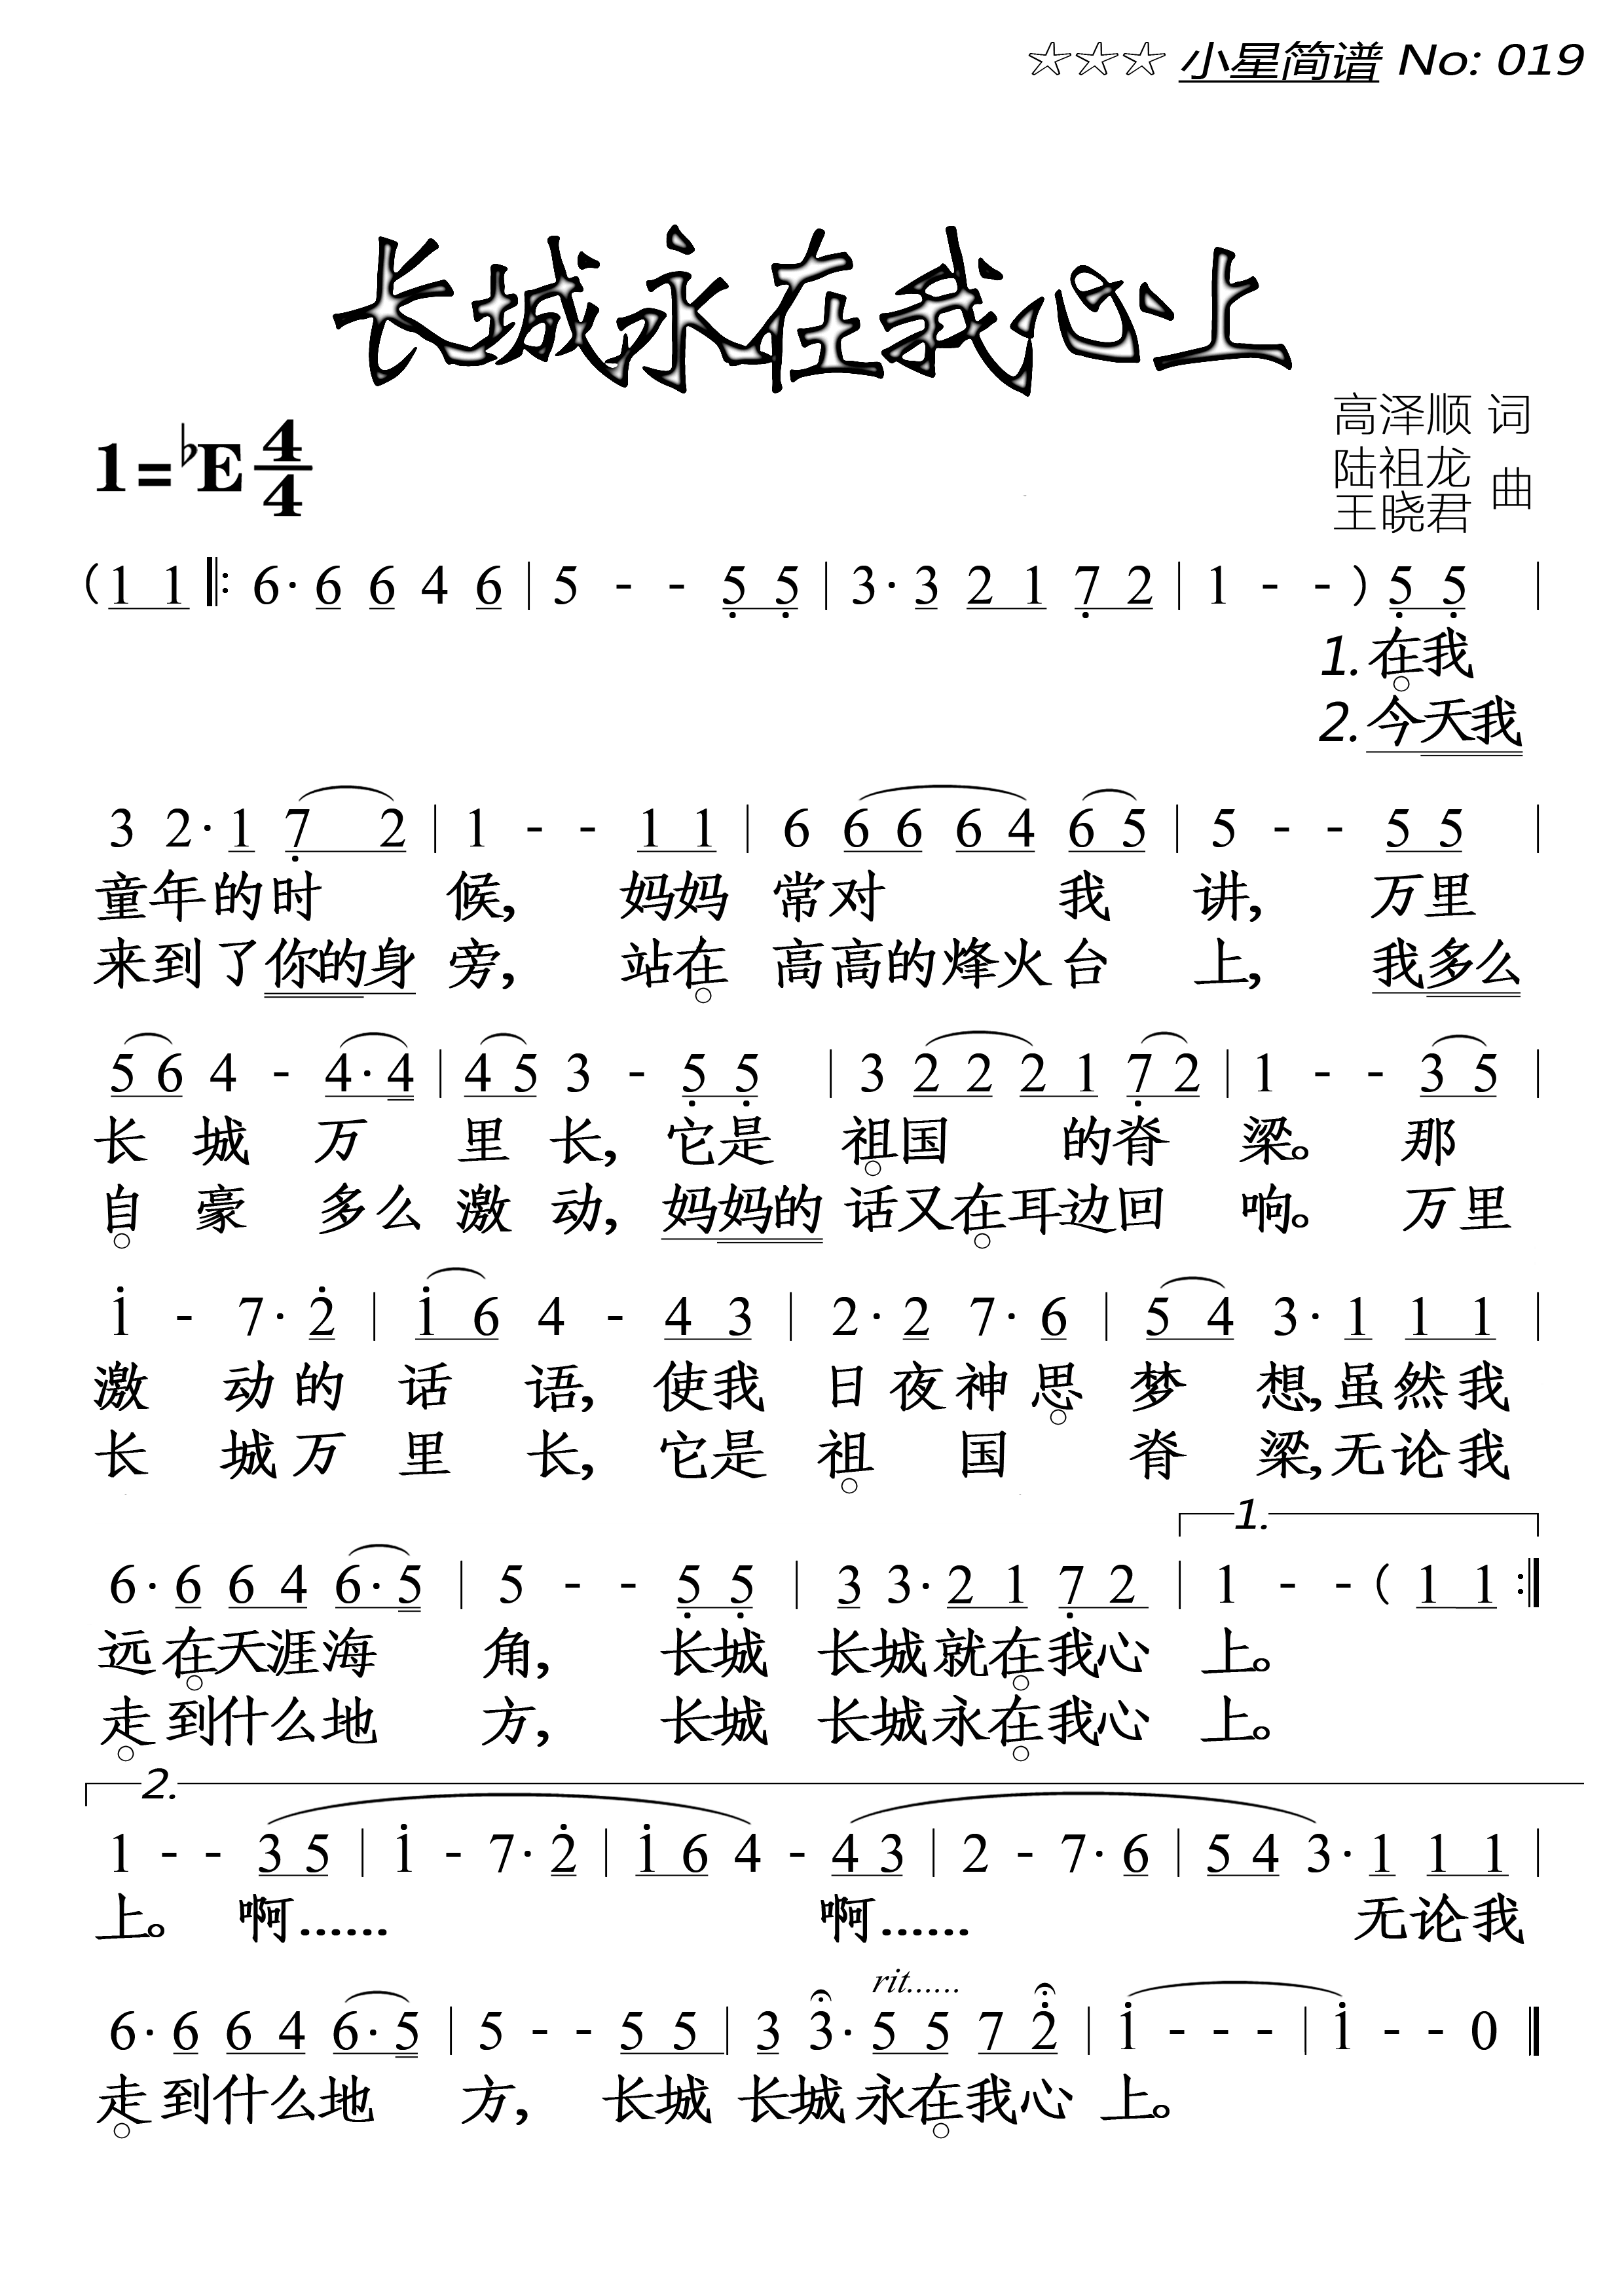 ☆☆☆ 小星简谱 No: 019
长城永在我心上
高泽顺 词
1=♭E 4/4
陆祖龙
王晓君 曲
( 1 1 ‖: 6· 6 6 4 6 | 5 - - 5̣ 5̣ | 3· 3 2 1 7̣ 2 | 1 - - ) 5̣ 5̣ |
1. 在我
2. 今天我
3 2· 1 7̣ 2 | 1 - - 1 1 | 6 6 6 6 4 6 5 | 5 - - 5 5 |
童年的时 候, 妈妈 常对 我 讲, 万里
来到了你的身 旁, 站在 高高的烽火台 上, 我多么
5 6 4 - 4· 4 | 4 5 3 - 5̣ 5̣ | 3 2 2 2 1 7̣ 2 | 1 - - 3 5 |
长 城 万 里 长, 它是 祖国 的脊 梁。 那
自 豪 多么 激 动, 妈妈的 话又在耳边回 响。 万里
1̇ - 7· 2̇ | 1̇ 6 4 - 4 3 | 2· 2 7· 6 | 5 4 3· 1 1 1 |
激 动的 话 语, 使我 日夜神思 梦 想,虽然我
长 城万 里 长, 它是 祖 国 脊 梁,无论我
1.
6· 6 6 4 6· 5 | 5 - - 5̣ 5̣ | 3 3· 2 1 7̣ 2 | 1 - - ( 1 1 :‖
远在天涯海 角, 长城 长城就在我心 上。
走到什么地 方, 长城 长城永在我心 上。
2.
1 - - 3 5 | 1̇ - 7· 2̇ | 1̇ 6 4 - 4 3 | 2 - 7· 6 | 5 4 3· 1 1 1 |
上。 啊…… 啊…… 无论我
rit......
6· 6 6 4 6· 5 | 5 - - 5 5 | 3 3· 5 5 7 2̇ | 1̇ - - - | 1̇ - - 0 ‖
走到什么地 方, 长城 长城永在我心 上。